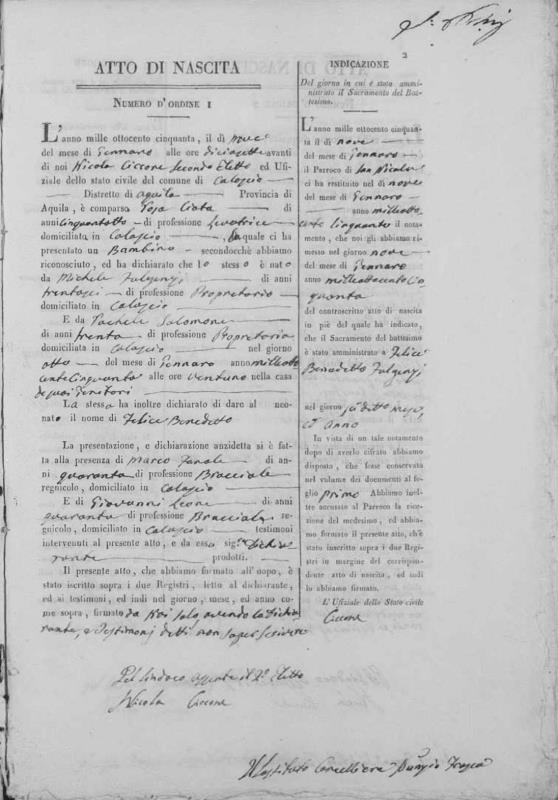 2
ATTO DI NASCITA
NUMERO D'ORDINE 1
L'anno mille ottocento cinquanta, il dì nove
del mese di Gennaro alle ore diciasette avanti
di noi Nicola Ciccone Secondo Eletto ed Ufi-
ziale dello stato civile del comune di Calascio
Distretto di Aquila Provincia di
Aquila, è comparsa di
anni Cinquantotto di professione Levatrice
domiciliata in Calascio la quale ci ha
presentato un Bambino secondocchè abbiamo
riconosciuto, ed ha dichiarato che lo stesso è nato
da Michele Fulgenzj di anni
trentasei di professione Proprietario
domiciliato in Calascio
E da Salomone
di anni trenta di professione Proprietaria
domiciliata in Calascio nel giorno
otto del mese di Gennaro anno milleotto
cento Cinquanta alle ore ventuno nella casa
de suoi Genitori
La stessa ha inoltre dichiarato di dare al neo-
nato il nome di Felice Benedetto
La presentazione, e dichiarazione anzidetta si è fat-
ta alla presenza di Marco di an-
ni quaranta di professione Bracciale
regnicolo, domiciliato in Calascio
E di Giovanni Leone di anni
quaranta di professione Bracciale re-
gnicolo, domiciliato in Calascio testimoni
intervenuti al presente atto, e da essa sig.ra dichia
rante prodotti.
Il presente atto, che abbiamo formato all'uopo, è
stato iscritto sopra i due Registri, letto al dichiarante,
ed ai testimoni, ed indi nel giorno, mese, ed anno co-
me sopra, firmato da Noi solo avendo la dichia
rante, e Testimonj detti non saper scrivere
Pel Sindaco assente il 2º Eletto
Nicola Ciccone
Il Sostituto Cancelliere
INDICAZIONE
Del giorno in cui è stato ammi-
nistrato il Sacramento del Bat-
tesimo.
L'anno mille ottocento cinquan-
ta il dì nove
del mese di Gennaro
il Parroco di San Nicola
ci ha restituito nel dì nove
del mese di Gennaro
anno milleotto
cento Cinquanta il nota-
mento, che noi gli abbiamo ri-
messo nel giorno nove
del mese di Gennaro
anno milleottocento Cin
quanta
del controscritto atto di nascita
in piè del quale ha indicato,
che il Sacramento del battesimo
è stato amministrato a Felice
Benedetto Fulgenzj
nel giorno detto mese,
ed Anno
In vista di un tale notamento
dopo di averlo cifrato abbiamo
disposto, che fosse conservato
nel volume dei documenti al fo-
glio primo Abbiamo inol-
tre accusato al Parroco la ri-
cezione del medesimo, ed abbia-
mo formato il presente atto, ch'è
stato inscritto sopra i due Regi-
stri in margine del corrispon-
dente atto di nascita, ed indi
lo abbiamo firmato.
L'Ufiziale dello Stato civile
Ciccone